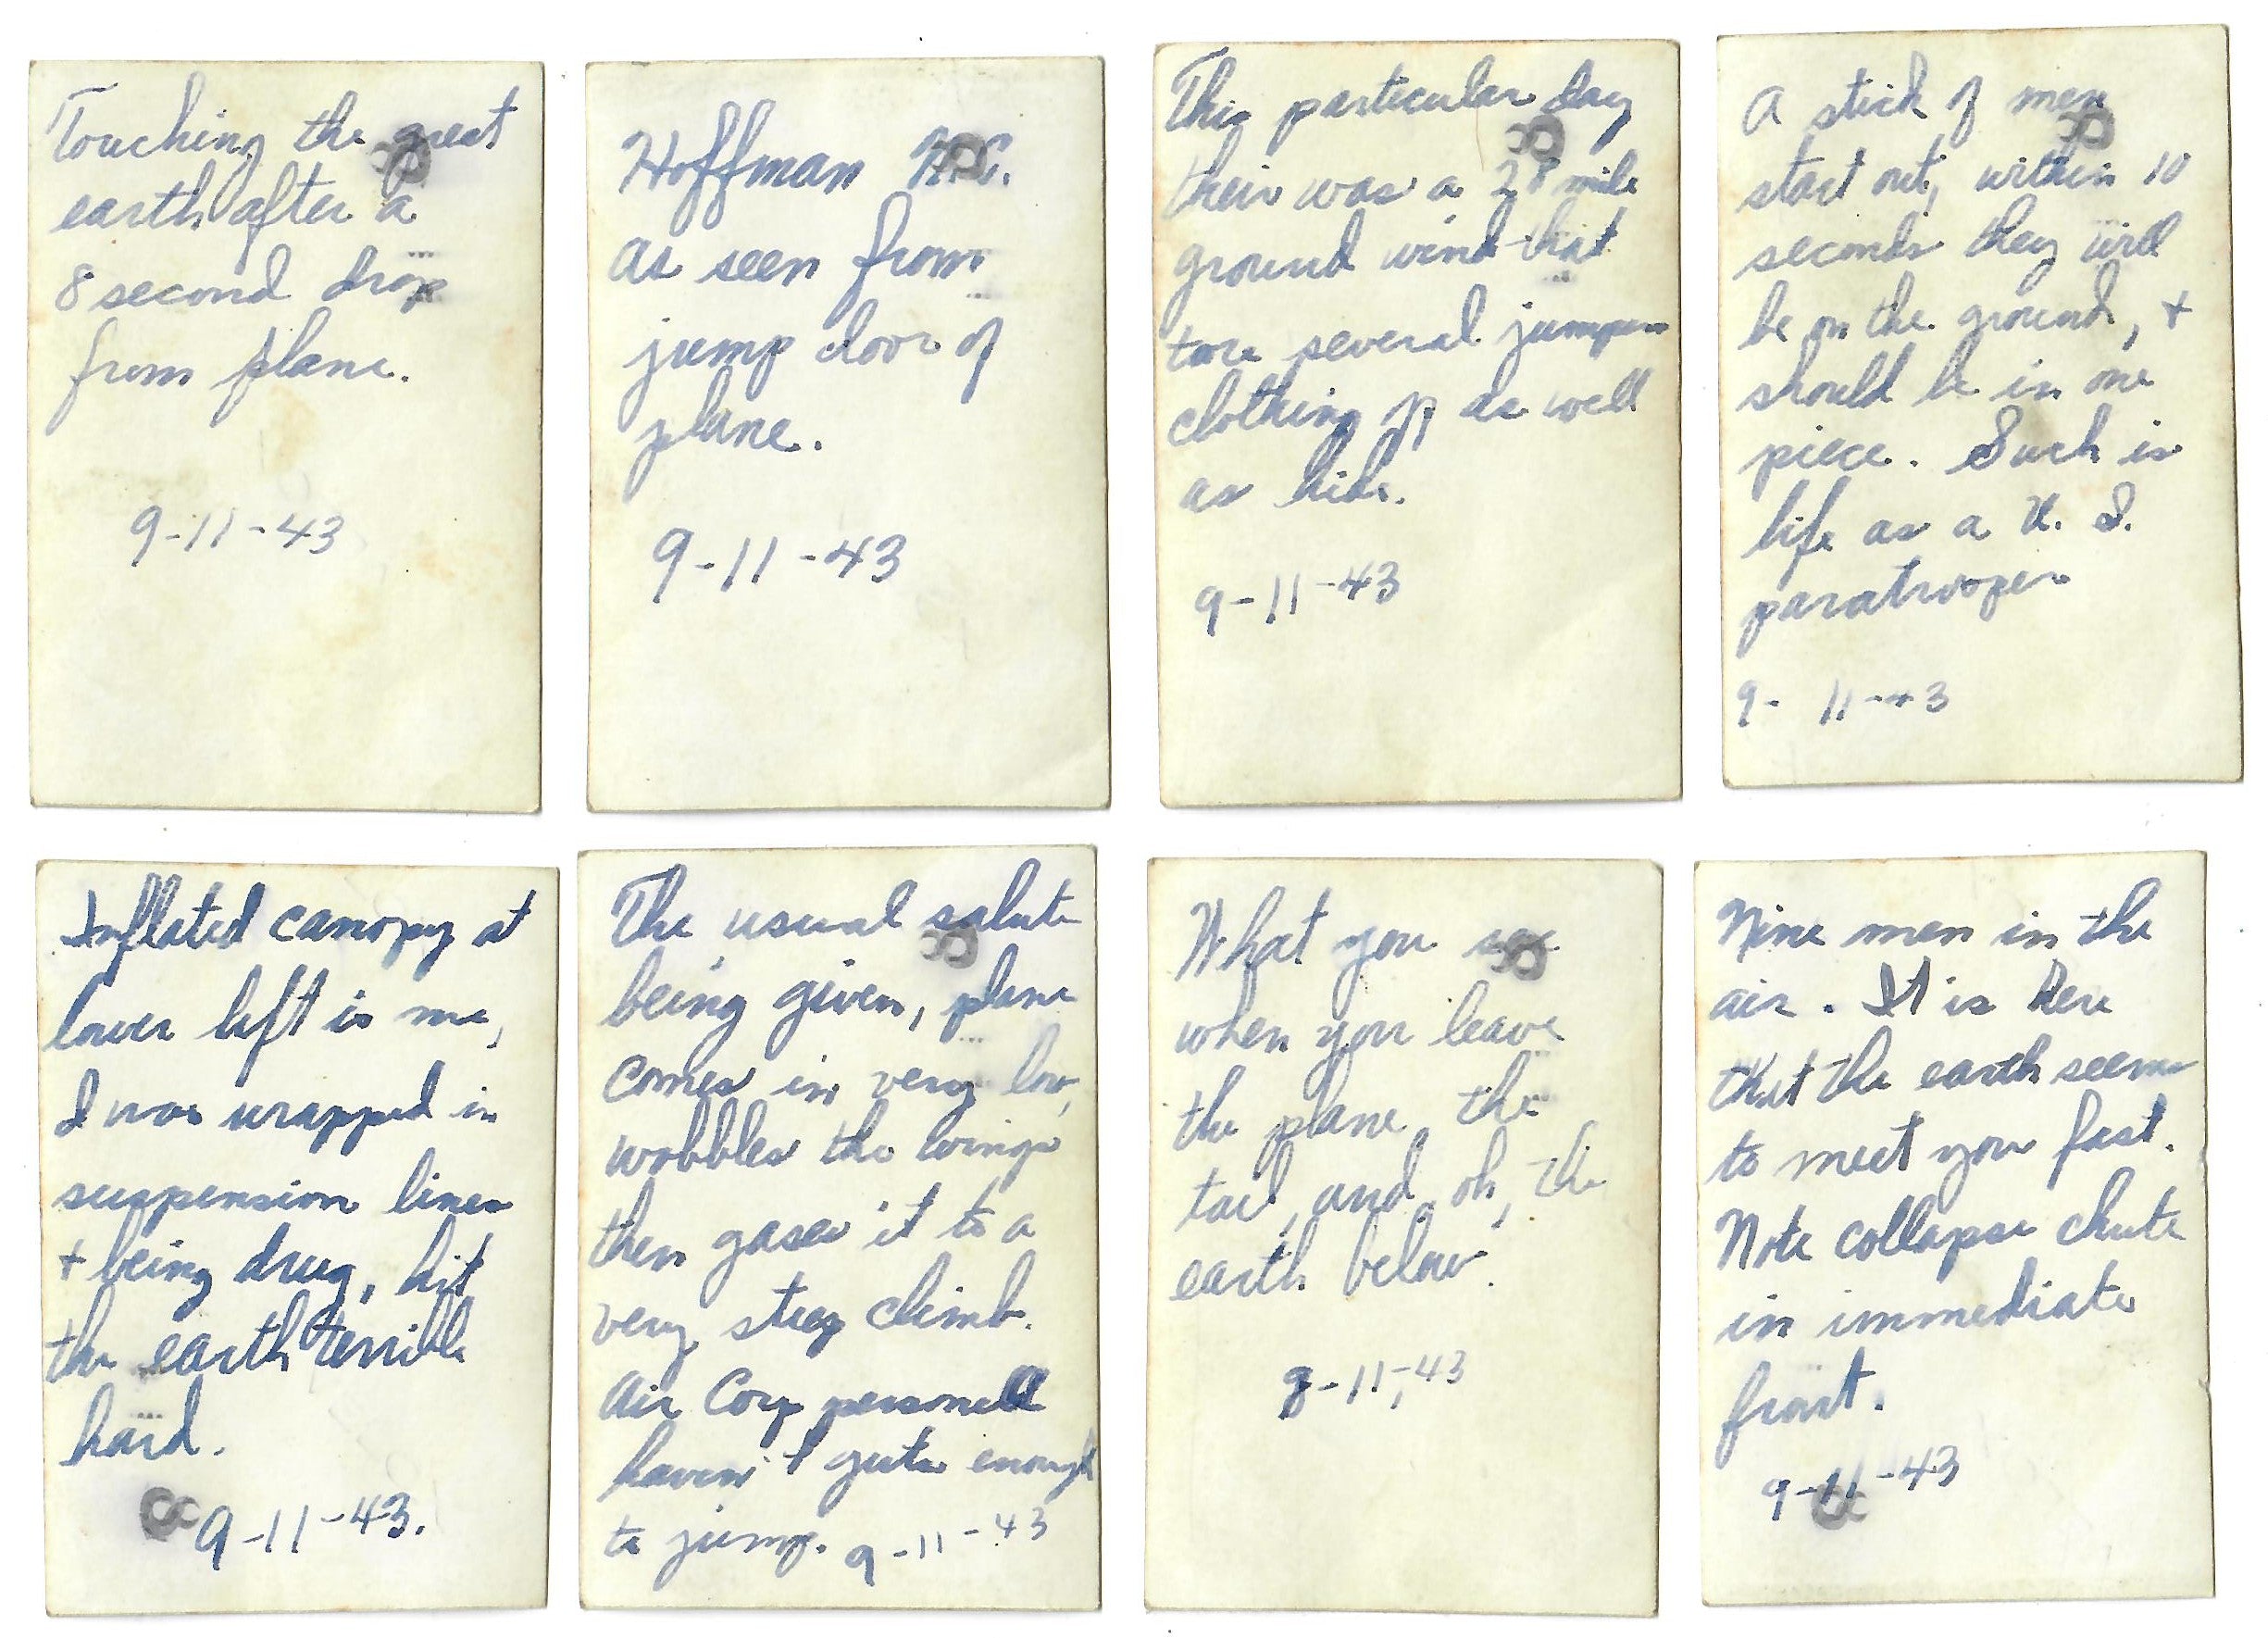 Touching the great
earth after a
8 second drop
from plane.
9-11-43
Hoffman N.C.
as seen from
jump door of
plane.
9-11-43
This particular day
their was a 28 mile
ground wind that
tore several jumpers
clothing up as well
as hide.
9-11-43
A stick of men
start out, within 10
seconds they will
be on the ground, +
should be in one
piece. Such is
life as a U. S.
paratrooper
9-11-43
Inflated canopy at
lower left is me,
I was wrapped in
suspension lines
+ being drug, hit
the earth terrible
hard.
9-11-43.
The usual salute
being given, plane
comes in very low,
wobbles the wings
then gases it to a
very steep climb.
Air Corp personell
haven't guts enough
to jump. 9-11-43
What you see
when you leave
the plane the
tail, and oh, the
earth below.
9-11-43
Nine men in the
air. It is here
that the earth seems
to meet you fast.
Note collapse chute
in immediate
front.
9-11-43